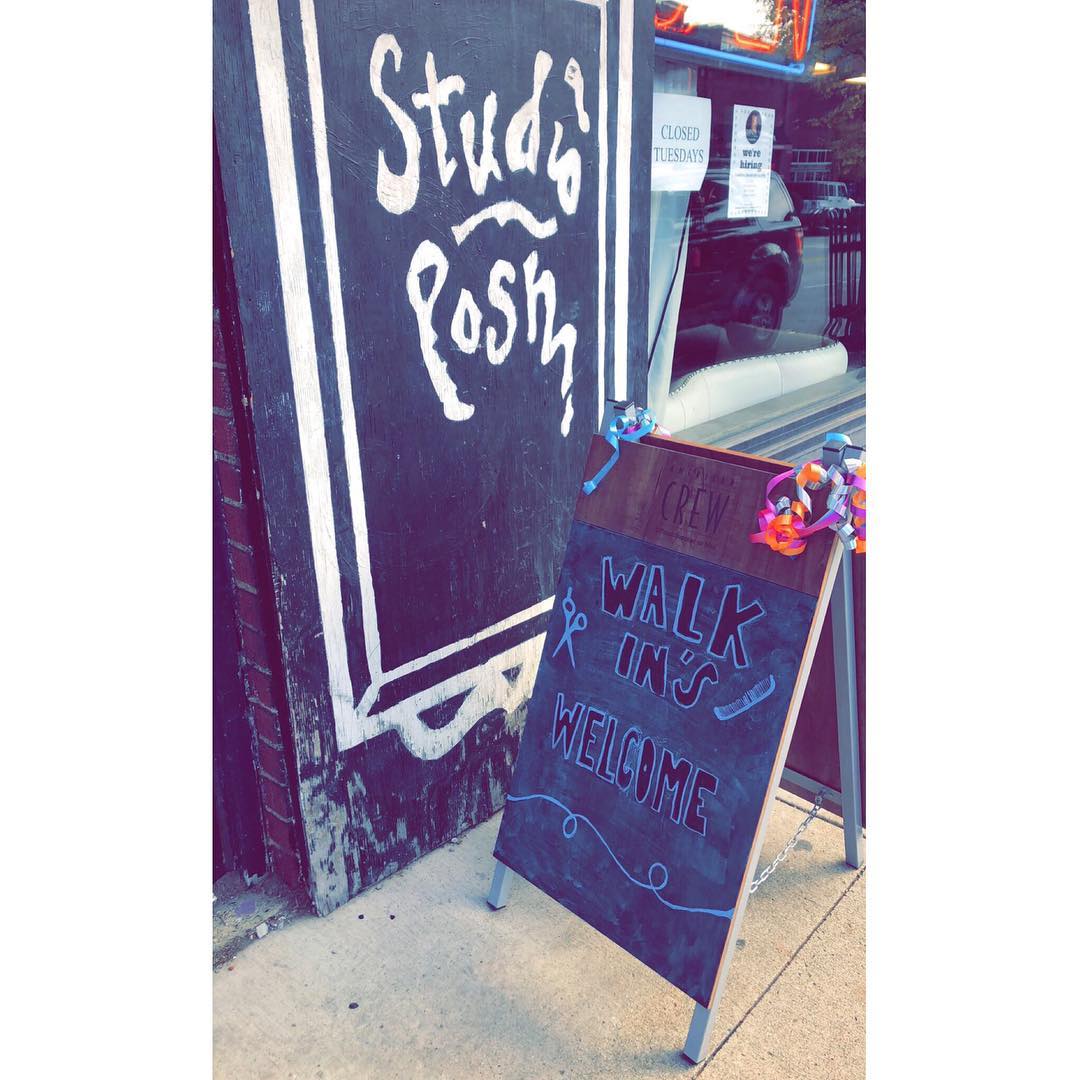 Studio
Posh
CLOSED
TUESDAYS
we're
hiring
AMERICAN
CREW
WALK
IN'S
WELCOME